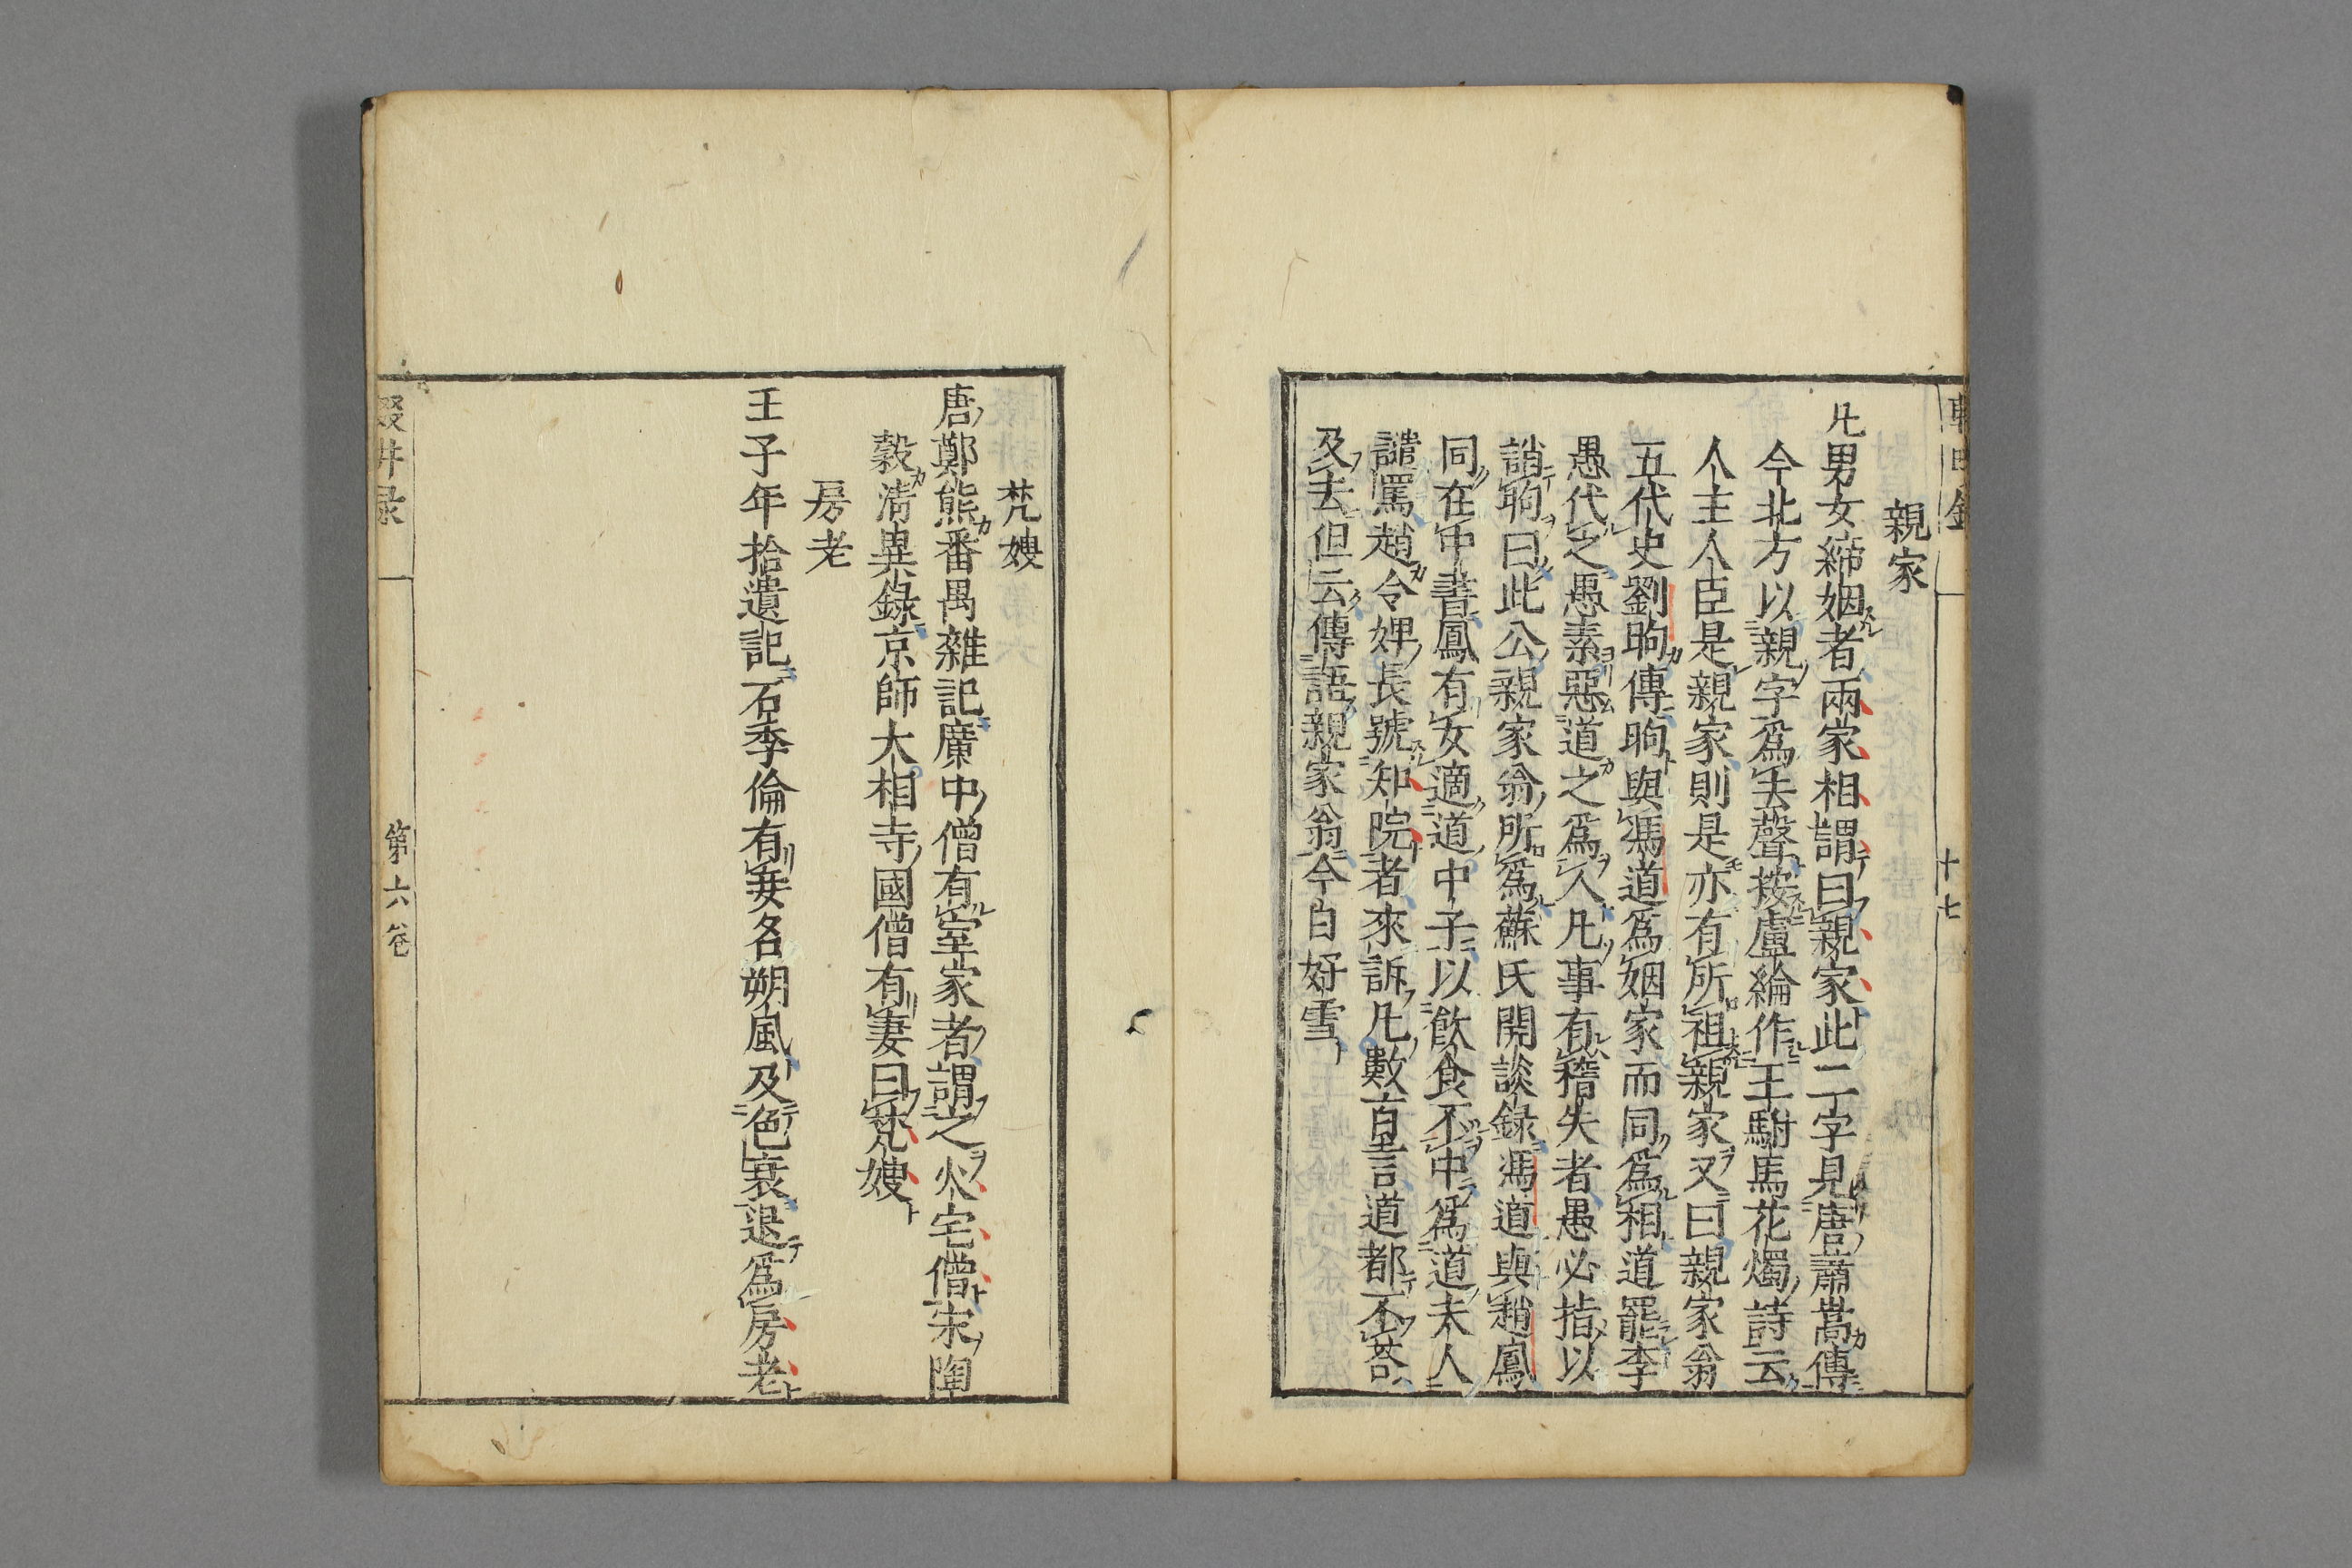 親家
凡男女締姻者兩家相謂曰親家此二字見唐蕭嵩傳
今北方以親字爲去聲按盧綸作王駙馬花燭詩云
人主人臣是親家則是亦有所祖親家又曰親家翁
五代史劉昫傳昫與馮道爲姻家而同爲相道罷李
愚代之愚素惡道之爲人凡事有稽失者愚必指以
誚昫曰此公親家翁所爲蘇氏開談録馮道與趙鳳
同在中書鳳有女適道中子以飲食不中爲道夫人
譴罵趙令婢長號知院者來訴凡數百言道都不荅
及去但云傳語親家翁今白好雪
十七
梵嫂
唐鄭熊番禺雜記廣中僧有室家者謂之火宅僧宋陶
穀清異錄京師大相寺國僧有妻曰梵嫂
房老
王子年拾遺記石季倫有妾名朔風及色衰退爲房老
第六卷